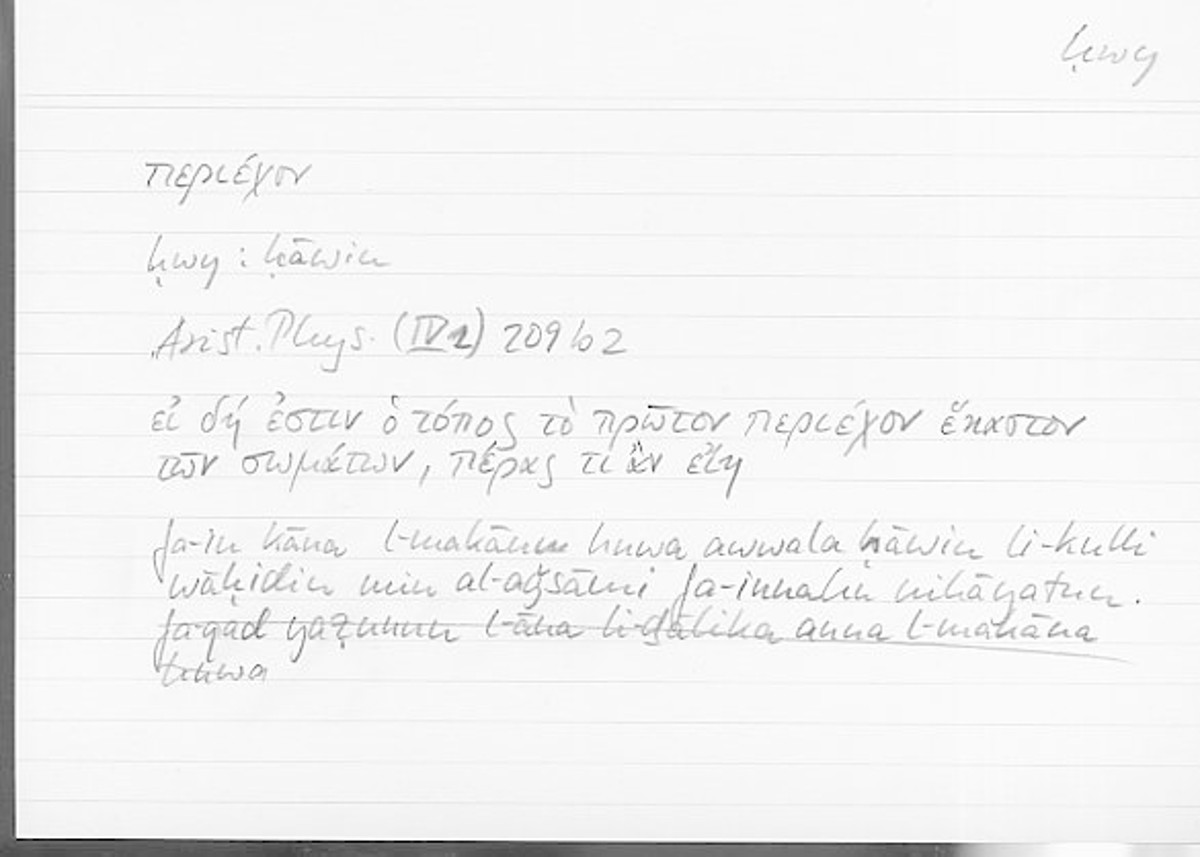 ḥwy
περιέχον
ḥwy : ḥāwin
Arist. Phys. (IV2) 209b2
εἰ δή ἐστιν ὁ τόπος τὸ πρῶτον περιέχον ἕκαστον
τῶν σωμάτων, πέρας τί ἂν εἴη
fa-in kāna l-makānu huwa awwala ḥāwin li-kulli
wāḥidin min al-aǧsāmi fa-innahū nihāyatun.
fa-qad yaẓunnu l-āna li-ḏālika anna l-makāna
huwa